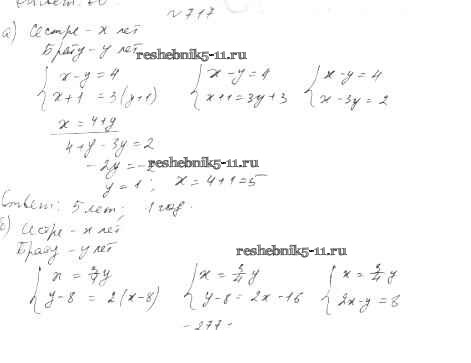 № 717
а) Сестре - x лет
Брату - y лет
reshebnik5-11.ru
{ x - y = 4
x + 1 = 3(y+1)
{ x - y = 4
x + 1 = 3y + 3
{ x - y = 4
x - 3y = 2
x = 4 + y
4 + y - 3y = 2
- 2y = - 2
reshebnik5-11.ru
y = 1; x = 4 + 1 = 5
Ответ: 5 лет; 1 год.
б) Сестре - x лет
Брату - y лет
reshebnik5-11.ru
{ x = 3/4 y
y - 8 = 2(x - 8)
{ x = 3/4 y
y - 8 = 2x - 16
{ x = 3/4 y
2x - y = 8
- 277 -